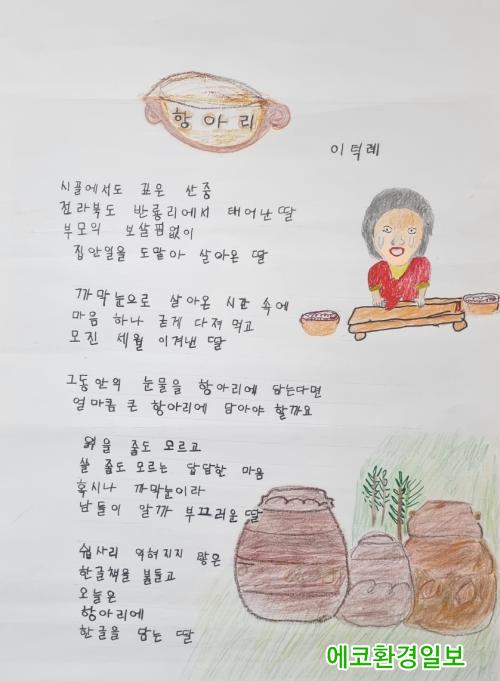 항아리
이덕례
시골에서도 깊은 산중
전라북도 반룡리에서 태어난 딸
부모의 보살핌없이
집안일을 도맡아 살아온 딸
까막눈으로 살아온 시간 속에
마음 하나 굳게 다져 먹고
모진 세월 이겨낸 딸
그동안의 눈물을 항아리에 담는다면
얼마큼 큰 항아리에 담아야 할까요
읽을 줄도 모르고
쓸 줄도 모르는 답답한 마음
혹시나 까막눈이라
남들이 알까 부끄러운 딸
쉽사리 익혀지지 않은
한글책을 붙들고
오늘은
항아리에
한글을 담는 딸
에코환경일보